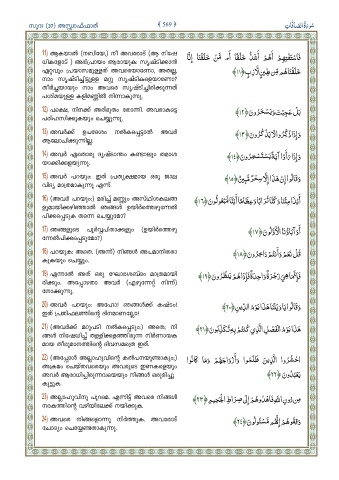 സൂറ: (37) അസ്സ്വാഫ്ഫാത്ത്
( 569 )
سُورَةُ الصَّافَّاتِ
11) ആകയാൽ (നബിയേ,) നീ അവരോട് (ആ നിഷേ
ധികളോട് ) അഭിപ്രായം ആരായുക: സൃഷ്ടിക്കാൻ
ഏറ്റവും പ്രയാസമുള്ളത് അവരെയാണോ, അതല്ല,
നാം സൃഷ്ടിച്ചിട്ടുള്ള മറ്റു സൃഷ്ടികളെയാണോ?
തീർച്ചയായും നാം അവരെ സൃഷ്ടിച്ചിരിക്കുന്നത്
പശിമയുള്ള കളിമണ്ണിൽ നിന്നാകുന്നു.
فَاسْتَفْتِهِمْ أَهُمْ أَشَدُّ خَلْقًا أَم مَّنْ خَلَقْنَا إِنَّا
خَلَقْنَاهُم مِّن طِينٍ لَّازِبٍ ﴿١١﴾
12) പക്ഷെ, നിനക്ക് അത്ഭുതം തോന്നി. അവരാകട്ടെ
പരിഹസിക്കുകയും ചെയ്യുന്നു.
بَلْ عَجِبْتَ وَيَسْخَرُونَ ﴿١٢﴾
13) അവർക്ക് ഉപദേശം നൽകപ്പെട്ടാൽ അവർ
ആലോചിക്കുന്നില്ല.
وَإِذَا ذُكِّرُوا لَا يَذْكُرُونَ ﴿١٣﴾
14) അവർ ഏതൊരു ദൃഷ്ടാന്തം കണ്ടാലും തമാശ
യാക്കിക്കളയുന്നു.
وَإِذَا رَأَوْا آيَةً يَسْتَسْخِرُونَ ﴿١٤﴾
15) അവർ പറയും: ഇത് പ്രത്യക്ഷമായ ഒരു ജാല
വിദ്യ മാത്രമാകുന്നു എന്ന്.
وَقَالُوا إِنْ هَٰذَا إِلَّا سِحْرٌ مُّبِينٌ ﴿١٥﴾
16) (അവർ പറയും:) മരിച്ച് മണ്ണും അസ്ഥിശകലങ്ങ
ളുമായിക്കഴിഞ്ഞാൽ ഞങ്ങൾ ഉയിർത്തെഴുന്നേൽ
പിക്കപ്പെടുക തന്നെ ചെയ്യുമോ?
أَئِذَا مِتْنَا وَكُنَّا تُرَابًا وَعِظَامًا أَإِنَّا لَمَبْعُوثُونَ ﴿١٦﴾
17) ഞങ്ങളുടെ പൂർവ്വപിതാക്കളും (ഉയിർത്തെഴു
ന്നേൽപിക്കപ്പെടുമോ?)
أَوَآبَاؤُنَا الْأَوَّلُونَ ﴿١٧﴾
18) പറയുക: അതെ. (അന്ന്) നിങ്ങൾ അപമാനിതരാ
കുകയും ചെയ്യും.
قُلْ نَعَمْ وَأَنتُمْ دَاخِرُونَ ﴿١٨﴾
19) എന്നാൽ അത് ഒരു ഘോരശബ്ദം മാത്രമായി
രിക്കും. അപ്പോഴതാ അവർ (എഴുന്നേറ്റ് നിന്ന്)
നോക്കുന്നു.
فَإِنَّمَا هِيَ زَجْرَةٌ وَاحِدَةٌ فَإِذَا هُمْ يَنظُرُونَ ﴿١٩﴾
20) അവർ പറയും: അഹോ! ഞങ്ങൾക്ക് കഷ്ടം!
ഇത് പ്രതിഫലത്തിന്റെ ദിനമാണല്ലോ!
وَقَالُوا يَا وَيْلَنَا هَٰذَا يَوْمُ الدِّينِ ﴿٢٠﴾
21) (അവർക്ക് മറുപടി നൽകപ്പെടും:) അതെ; നി
ങ്ങൾ നിഷേധിച്ച് തള്ളിക്കളഞ്ഞിരുന്ന നിർണായക
മായ തീരുമാനത്തിന്റെ ദിവസമത്രെ ഇത്.
هَٰذَا يَوْمُ الْفَصْلِ الَّذِي كُنتُم بِهِ تُكَذِّبُونَ ﴿٢١﴾
22) (അപ്പോൾ അല്ലാഹുവിന്റെ കൽപനയുണ്ടാകും;)
അക്രമം ചെയ്തവരെയും അവരുടെ ഇണകളെയും
അവർ ആരാധിച്ചിരുന്നവയെയും നിങ്ങൾ ഒരുമിച്ചു
കൂട്ടുക.
احْشُرُوا الَّذِينَ ظَلَمُوا وَأَزْوَاجَهُمْ وَمَا كَانُوا
يَعْبُدُونَ ﴿٢٢﴾
23) അല്ലാഹുവിനു പുറമെ. എന്നിട്ട് അവരെ നിങ്ങൾ
നരകത്തിന്റെ വഴിയിലേക്ക് നയിക്കുക.
مِن دُونِ اللَّهِ فَاهْدُوهُمْ إِلَىٰ صِرَاطِ الْجَحِيمِ ﴿٢٣﴾
24) അവരെ നിങ്ങളൊന്നു നിർത്തുക. അവരോട്
ചോദ്യം ചെയ്യേണ്ടതാകുന്നു.
وَقِفُوهُمْ إِنَّهُم مَّسْئُولُونَ ﴿٢٤﴾